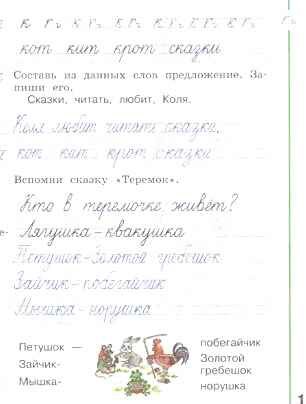 кот кит крот сказки
Составь из данных слов предложение. За-
пиши его.
Сказки, читать, любит, Коля.
Коля любит читать сказки.
кот кит крот сказки
Вспомни сказку «Теремок».
Кто в теремочке живёт?
Лягушка – квакушка
Петушок – Золотой гребешок
Зайчик – побегайчик
Мышка – норушка
Петушок —
побегайчик
Зайчик-
Золотой
гребешок
Мышка-
норушка
1